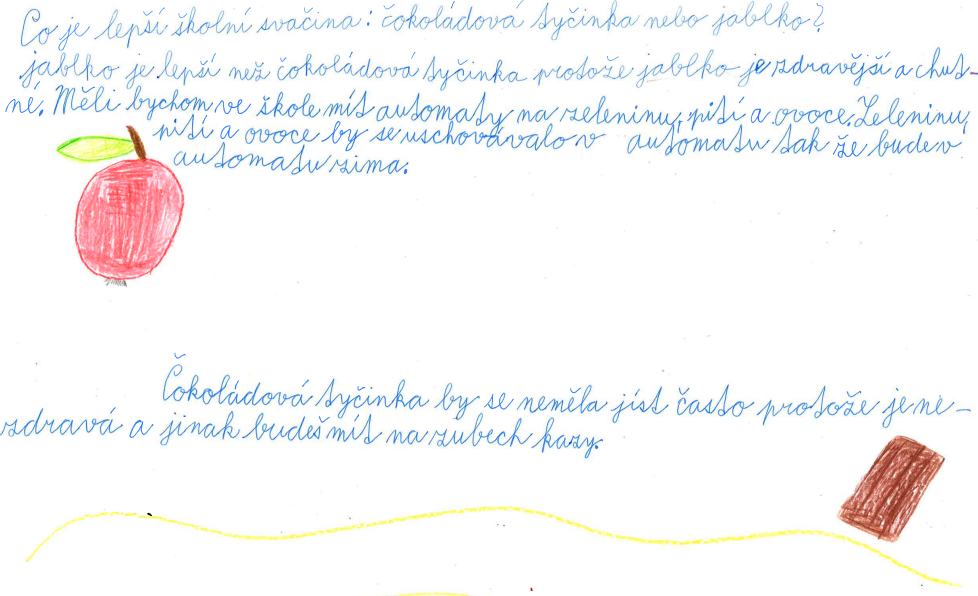 Co je lepší školní svačina: čokoládová tyčinka nebo jablko?
jablko je lepší než čokoládová tyčinka protože jablko je zdravější a chut-
né. Měli bychom ve škole mít automaty na zeleninu, pití a ovoce. Zeleninu,
pití a ovoce by se uschovávalo v automatu tak že bude v
automatu zima.
Čokoládová tyčinka by se neměla jíst často protože je ne-
zdravá a jinak budeš mít na zubech kazy.